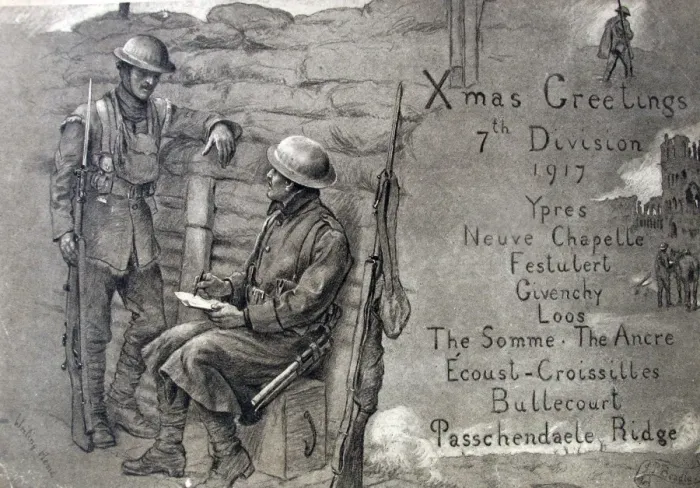 Xmas Greetings
7th Division
1917
Ypres
Neuve Chapelle
Festubert
Givenchy
Loos
The Somme · The Ancre
Écoust-Croissilles
Bullecourt
Passchendaele Ridge